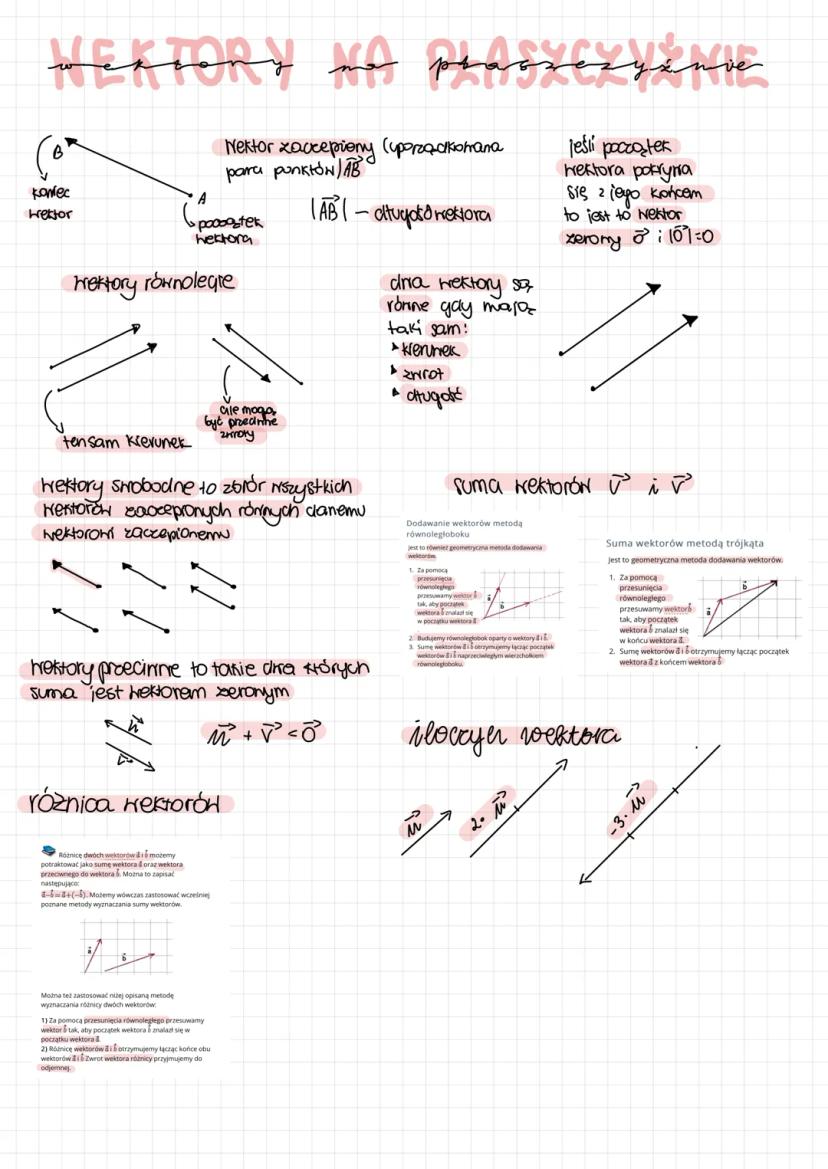 WEKTORY NA PŁASZCZYŹNIE
wektory na płaszczyźnie
B
A
koniec
wektor
początek
wektora
Wektor zaczepiony (uporządkowana
para punktów) AB
|AB| - długość wektora
jeśli początek
wektora pokrywa
się z jego końcem
to jest to wektor
zerowy 0 i |0|=0
wektory równoległe
ten sam kierunek
ale mogą
być przeciwne
zwroty
dwa wektory są
równe gdy mają
taki sam:
kierunek
zwrot
długość
wektory swobodne to zbiór wszystkich
wektorów zaczepionych równych danemu
wektorowi zaczepionemu
suma wektorów v i v
Dodawanie wektorów metodą
równoległoboku
Jest to również geometryczna metoda dodawania
wektorów.
1. Za pomocą
przesunięcia
równoległego
przesuwamy wektor b
tak, aby początek
wektora b znalazł się
w początku wektora a.
a
b
2. Budujemy równoległobok oparty o wektory a i b.
3. Sumę wektorów a i b otrzymujemy łącząc początek
wektorów a i b naprzeciwległym wierzchołkiem
równoległoboku.
Suma wektorów metodą trójkąta
Jest to geometryczna metoda dodawania wektorów.
1. Za pomocą
przesunięcia
równoległego
przesuwamy wektor b
tak, aby początek
wektora b znalazł się
w końcu wektora a.
a
b
2. Sumę wektorów a i b otrzymujemy łącząc początek
wektora a z końcem wektora b
wektory przeciwne to takie dwa których
suma jest wektorem zerowym
u + v = 0
iloczyn wektora
u
2· u
-3· u
różnica wektorów
Różnicę dwóch wektorów a i b możemy
potraktować jako sumę wektora a oraz wektora
przeciwnego do wektora b. Można to zapisać
następująco:
a-b=a+(-b). Możemy wówczas zastosować wcześniej
poznane metody wyznaczania sumy wektorów.
a
b
Można też zastosować niżej opisaną metodę
wyznaczania różnicy dwóch wektorów:
1) Za pomocą przesunięcia równoległego przesuwamy
wektor b tak, aby początek wektora b znalazł się w
początku wektora a.
2) Różnicę wektorów a i b otrzymujemy łącząc końce obu
wektorów a i b Zwrot wektora różnicy przyjmujemy do
odjemnej.